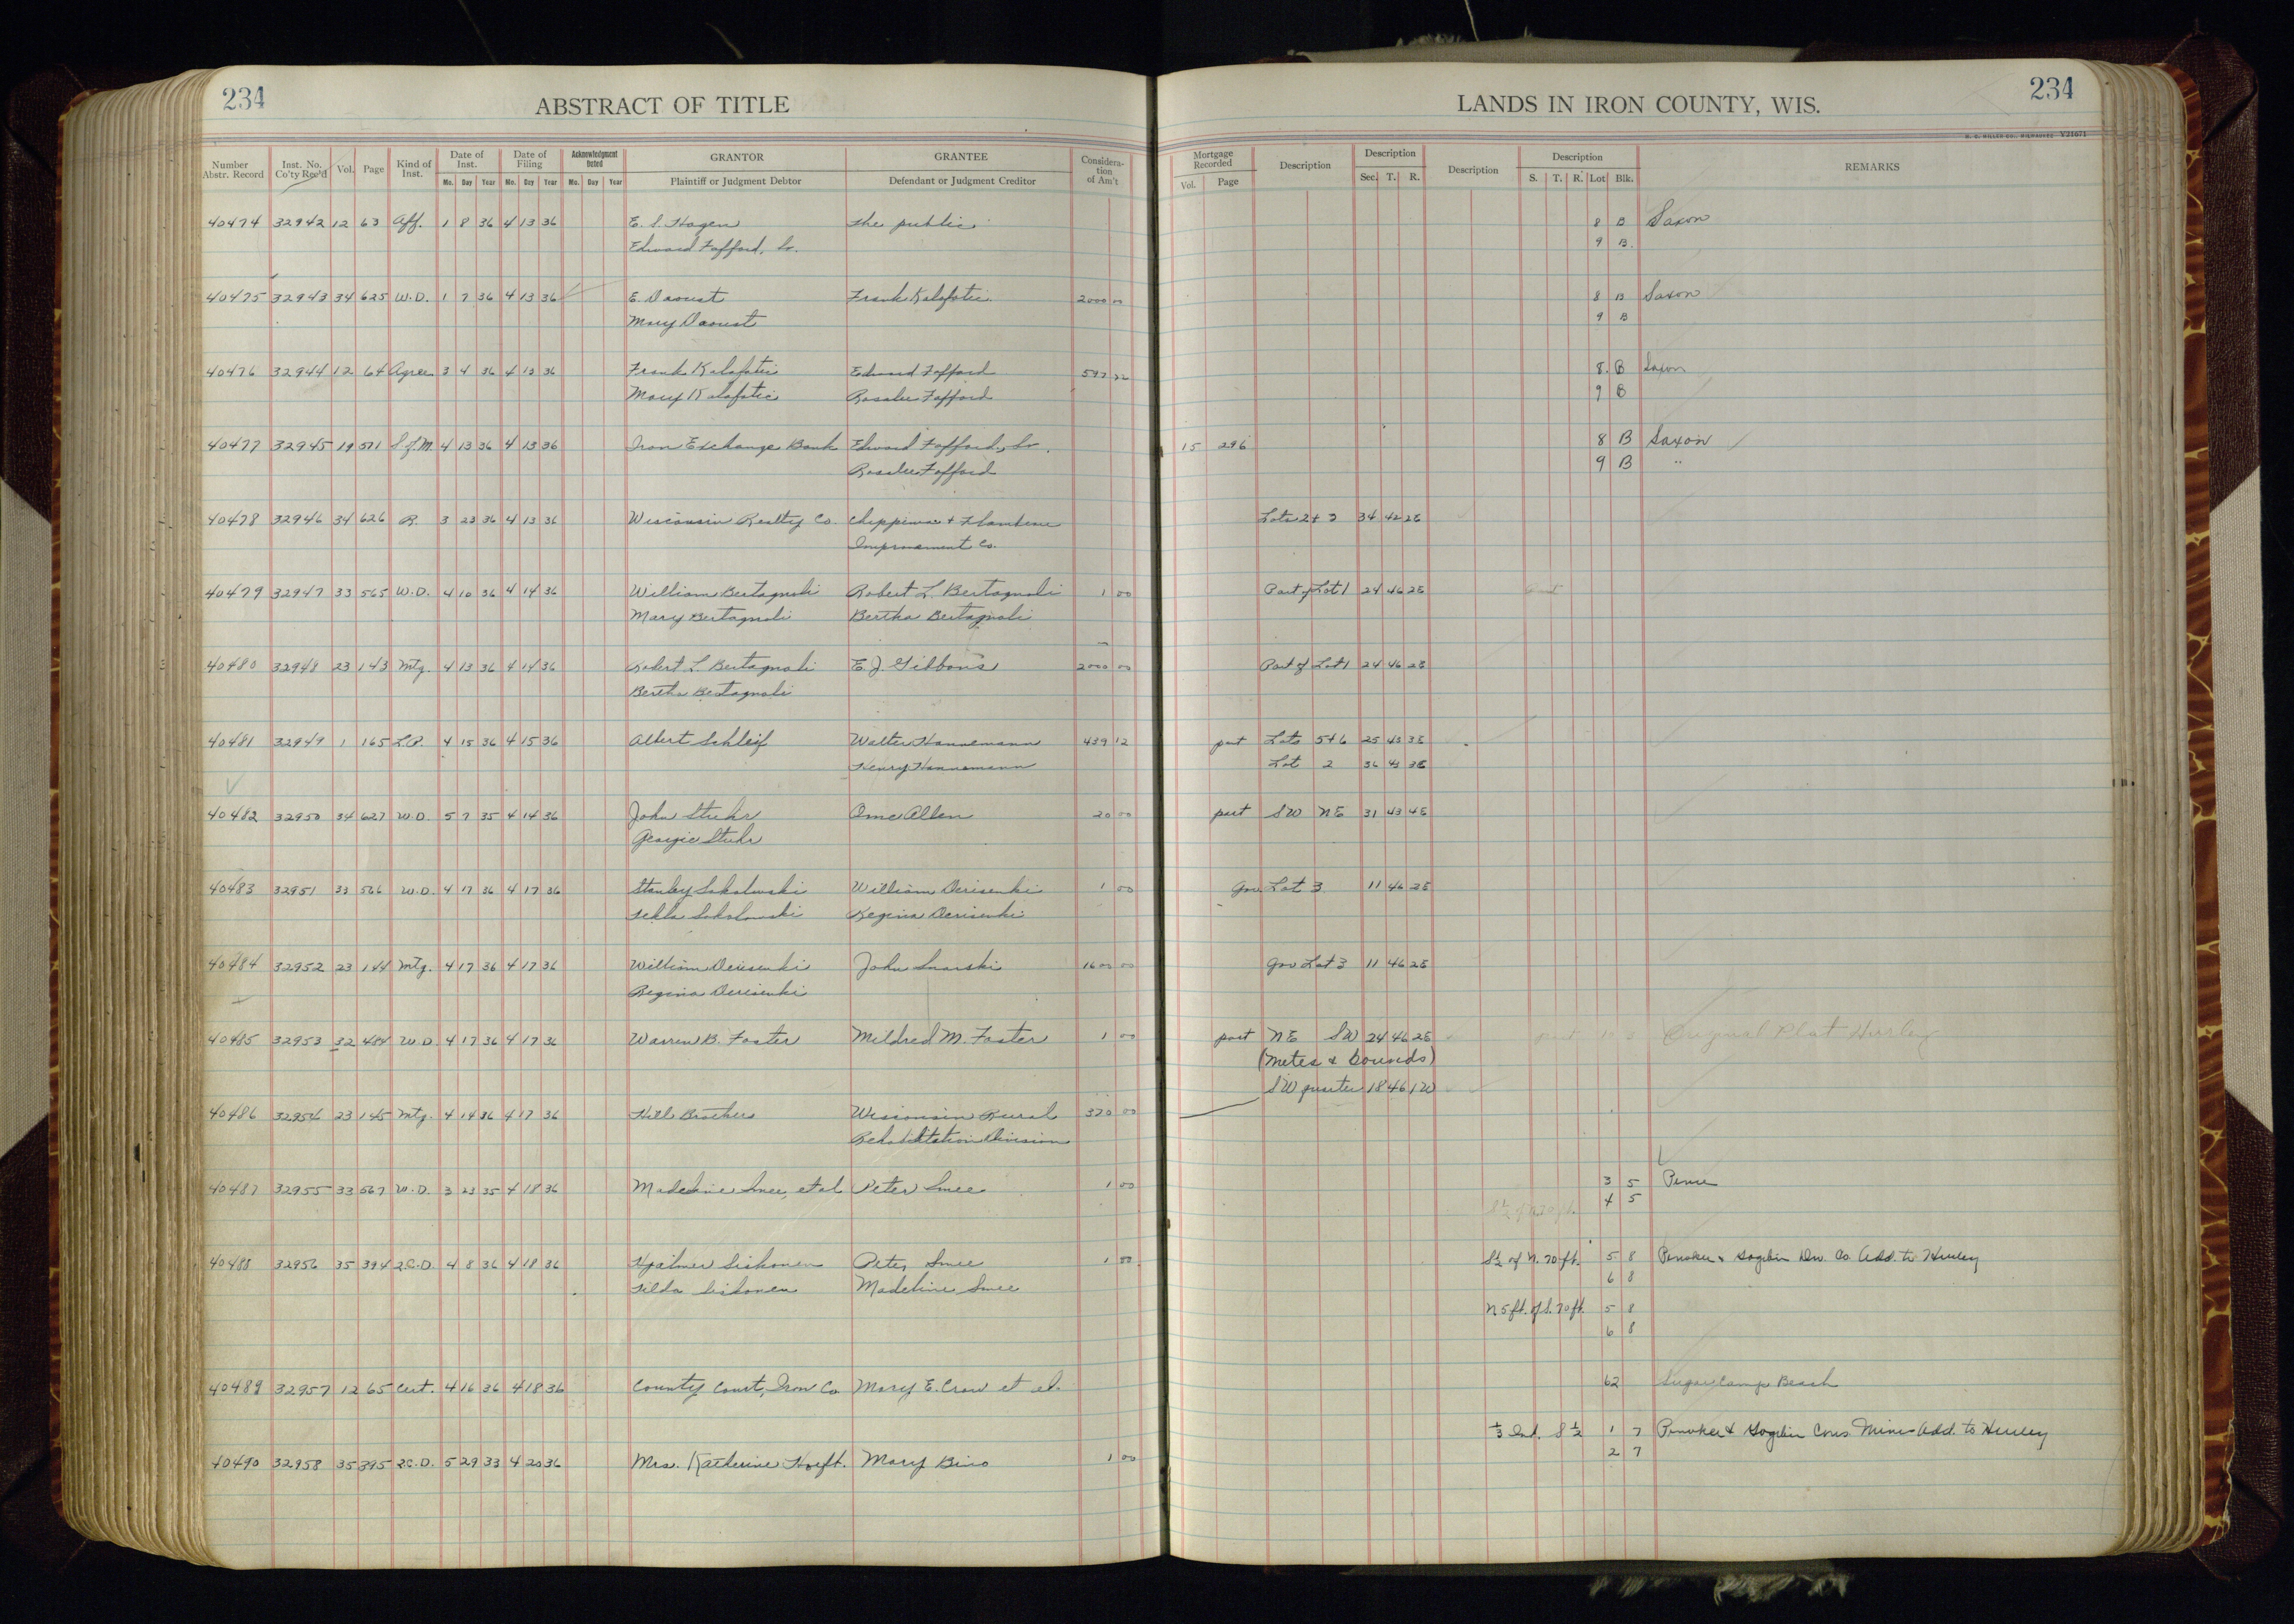 234 ABSTRACT OF TITLE
LANDS IN IRON COUNTY, WIS. 234
H. C. MILLER CO., MILWAUKEE V31671
Number Abstr. Record Inst. No. Co'ty Rec'd Vol. Page Kind of Inst. Date of Inst. Date of Filing Acknowledgment Dated GRANTOR GRANTEE Considera-tion of Am't
Mo. Day Year Mo. Day Year Mo. Day Year Plaintiff or Judgment Debtor Defendant or Judgment Creditor
Mortgage Recorded Description Description Description Description REMARKS
Vol. Page Sec. T. R. S. T. R. Lot Blk.
40474 32942 12 63 Aff. 1 8 36 4 13 36 E. S. Hagen The public 8 B Saxon
Edward Fafford, Sr. 9 B.
40475 32943 34 625 W.D. 1 7 36 4 13 36 E. Daoust Frank Kalafatic 2000 00 8 B Saxon
Mary Daoust 9 B
40476 32944 12 64 Agree 3 4 36 4 13 36 Frank Kalafatic Edward Fafford 8 B Saxon
Mary Kalafatic Rosalie Fafford 9 B
40477 32945 19 571 S.of M. 4 13 36 4 13 36 Iron Exchange Bank Edward Fafford, Sr. 15 296 8 B Saxon
Rosalie Fafford 9 B "
40478 32946 34 626 R. 3 23 36 4 13 36 Wisconsin Realty Co. Chippewa & Flambeau Lots 2 + 3 34 42 2E
Improvement Co.
40479 32947 33 565 W.D. 4 10 36 4 14 36 William Bertagnoli Robert L. Bertagnoli 1 00 Part of Lot 1 24 46 2E Part
Mary Bertagnoli Bertha Bertagnoli
40480 32948 23 143 Mtg. 4 13 36 4 14 36 Robert L. Bertagnoli E. J. Gibbons 2000 00 Part of Lot 1 24 46 2E
Bertha Bertagnoli
40481 32949 1 165 L.P. 4 15 36 4 15 36 Albert Schleif Walter Hannemann 439 12 part Lots 5+6 25 43 3E
Henry Hannemann Lot 2 36 43 3E
40482 32950 34 627 W.D. 5 7 35 4 14 36 John Stuhr Ome Allen 20 00 part SW NE 31 43 4E
Georgie Stuhr
40483 32951 33 566 W.D. 4 17 36 4 17 36 Stanley Sokolowski William Derisenki 1 00 Gov. Lot 3 11 46 2E
Tekla Sokolowski Regina Derisenki
40484 32952 23 144 Mtg. 4 17 36 4 17 36 William Derisenki John Snarski 1600 00 Gov Lot 3 11 46 2E
Regina Derisenki
40485 32953 32 484 W.D. 4 17 36 4 17 36 Warren B. Foster Mildred M. Foster 1 00 part NE SW 24 46 2E part 10 3 Original Plat Hurley
(Metes & Bounds)
SW quarter 18 46 1W
40486 32954 23 145 Mtg. 4 14 36 4 17 36 Hill Brothers Wisconsin Rural 320 00
Rehabilitation Division
40487 32955 33 567 W.D. 3 23 35 4 18 36 Madeline Smee, et al Peter Smee 1 00 3 5 Pence
S½ of N. 70 ft. 4 5
40488 32956 35 394 2.C.D. 4 8 36 4 18 36 Hjalmer Siskonen Peter Smee 1 00 S½ of N. 70 ft. 5 8 Penokee & Gogebic Dev. Co. Add. to Hurley
Hilda Siskonen Madeline Smee 6 8
N 5 ft. of S. 70 ft. 5 8
6 8
40489 32957 12 65 Cert. 4 16 36 4 18 36 County Court, Iron Co Mary E. Crow et al. 62 Sugar Camp Beach
⅓ Ind. S½ 1 7 Penokee & Gogebic Cons. Mines Add. to Hurley
2 7
40490 32958 35 395 2.C.D. 5 29 33 4 20 36 Mrs. Katherine Hoeft. Mary Bino 1 00